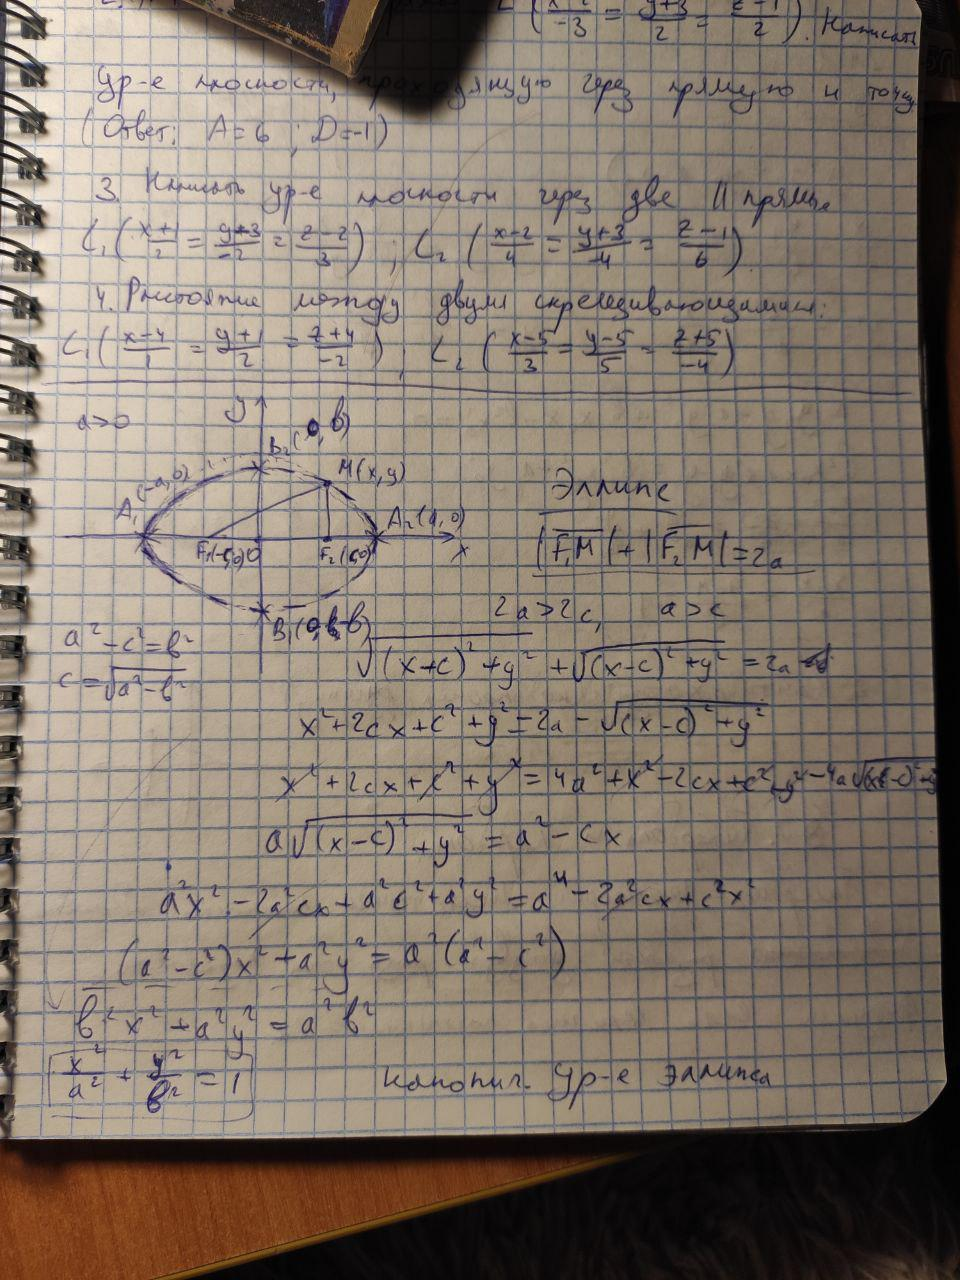 L (x-2/-3 = y+3/2 = z-1/2). Написать
ур-е плоскости, проходящую через прямую и точку
(Ответ: A=6; D=-1)
3. Написать ур-е плоскости через две || прямые
L₁ (x+1/2 = y+3/-2 = z-2/3); L₂ (x-2/4 = y+3/-4 = z-1/6)
4. Расстояние между двумя скрещивающимися:
L₁ (x-4/1 = y+1/2 = z+4/-2); L₂ (x-5/3 = y-5/5 = z+5/-4)
a>0
y
B₂(0, b)
M(x,y)
A₁(-a,0)
A₂(a,0)
F₁(-c,0)
0
F₂(c,0)
x
B₁(0,-b)
Эллипс
|F₁M|+|F₂M|=2a
2a>2c, a>c
a²-c²=b²
c=√a²-b²
√(x+c)²+y² + √(x-c)²+y² = 2a
x²+2cx+c²+y²=2a-√(x-c)²+y²
x²+2cx+c²+y²=4a²+x²-2cx+c²+y²-4a√(x-c)²+y
a√(x-c)²+y² = a²-cx
a²x²-2a²cx+a²c²+a²y²=a⁴-2a²cx+c²x²
(a²-c²)x²+a²y²=a²(a²-c²)
b²x²+a²y²=a²b²
x²/a² + y²/b² = 1
канонич. ур-е эллипса